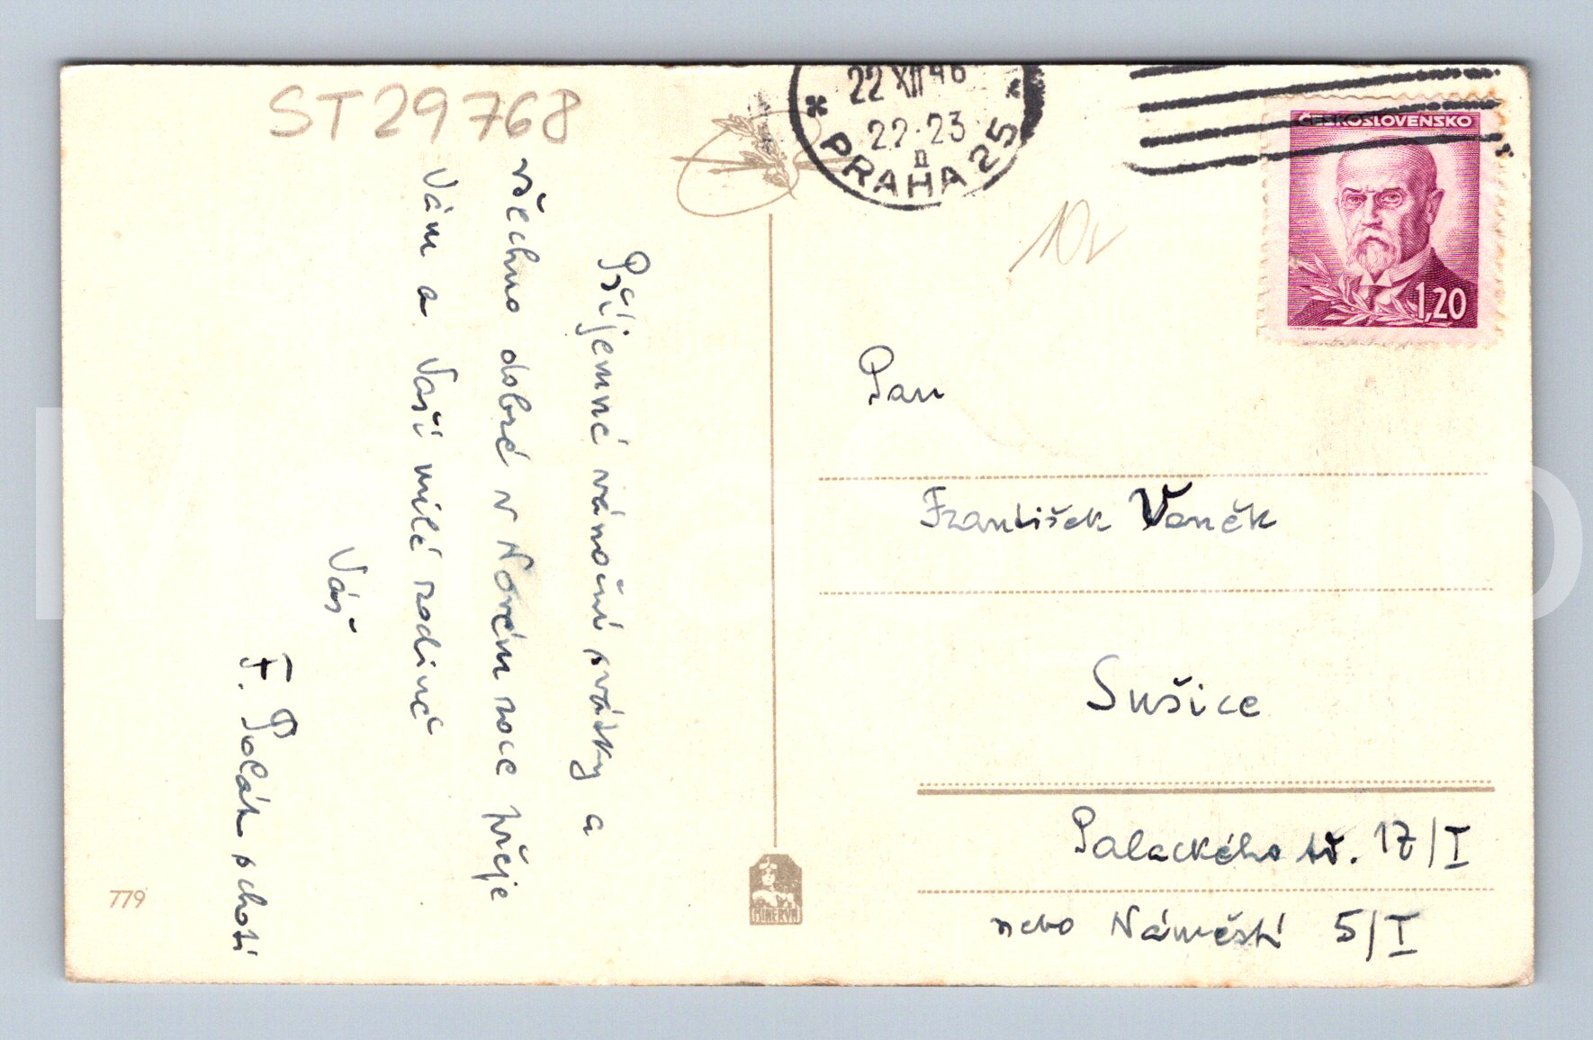 ST29768
Příjemné vánoční svátky a
všechno dobré v Novém roce přeje
Vám a Vaší milé rodině
Váš
F. Polák s chotí
779
MINERVA
22 XII 46
22-23
II
PRAHA 25
10,-
ČESKOSLOVENSKO
1,20
Pan
František Vaněk
Sušice
Palackého tř. 17/I
nebo Náměstí 5/I